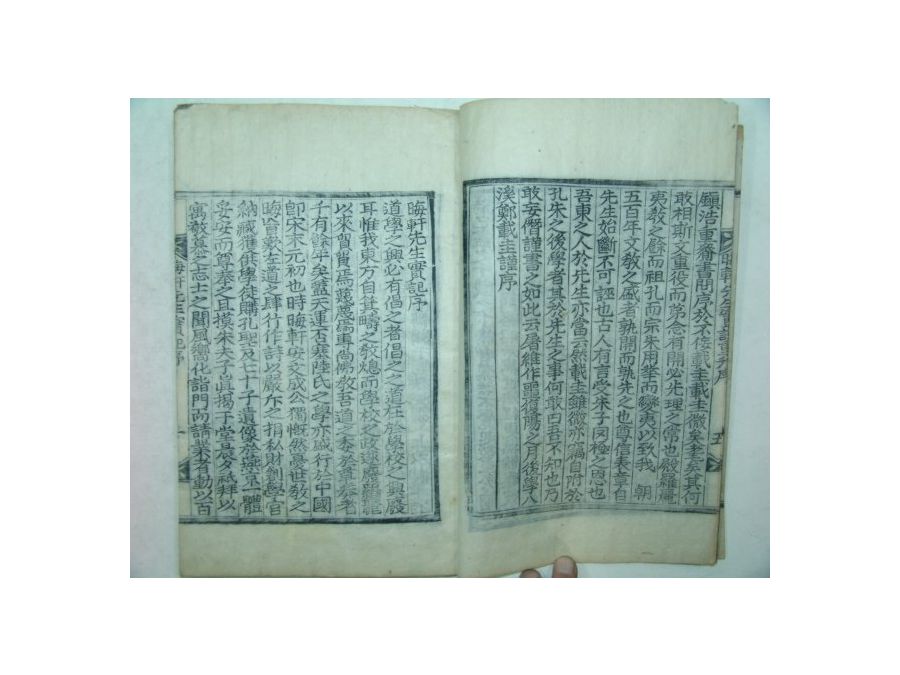 顧浩重齋書問序於不佞載圭載圭微矣耄矣其何
敢相斯文重役而第念有開必先理之常也殷羅麗
夷教之餘而祖孔而宗朱用華而變夷以致我 朝
五百年文教之盛者孰開而孰先之也尊信表章自
先生始斷不可誣也古人有言受朱子罔極之恩也
吾東之人於先生亦當云然載圭雖微亦濡自附於
孔朱之後學者其於先生之事何敢曰吾不知也乃
敢妄僭謹書之如此云屠維作噩復陽之月後學人
溪鄭載圭謹序
晦軒先生實記序
道學之興必有倡之者倡之之道在於學校之興廢
耳惟我東方自其疇之敎熄而學校之政遂廢羅
以來貿貿焉麗 專尚佛教吾道之委於草莽者
千有餘年矣蓋天運否塞陸氏之學亦盛行於中國
卽宋末元初也時晦軒安文成公獨慨然憂世教之
晦盲歎左道之肆行作詩以嚴斥之捐私財創學官
納臧獲俱學徒購孔聖及七十子遺像於燕京一體
妥安而尊奉之且摸朱夫子眞揭于堂晨夕祇拜以
寓敬慕之志士之聞風嚮化詣門而請業者動以百
晦軒先生實記序